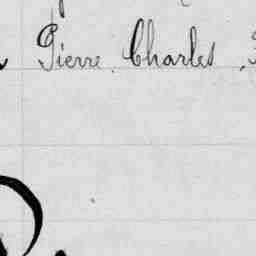 Pierre Charles